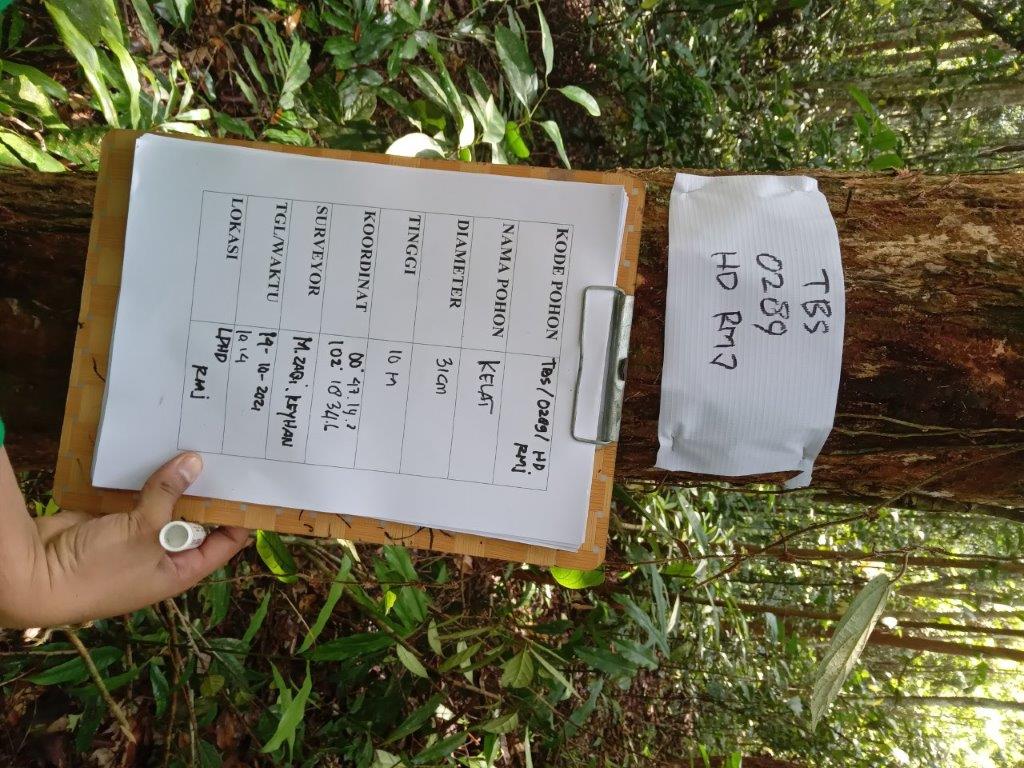 TBS
0289
HD RMJ
KODE POHON TBS/0289/ HD
RMJ
NAMA POHON KELAT
DIAMETER 31CM
TINGGI 10 M
KOORDINAT 00° 47.14.
102° 18 34.6
SURVEYOR M.ZAQI. KEYHAN
TGL/WAKTU 19-10-2021
10 14
LOKASI LPHD
RMJ